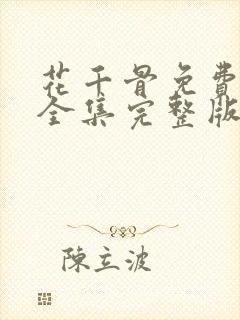 花千骨免費
全集完整版
陳立波